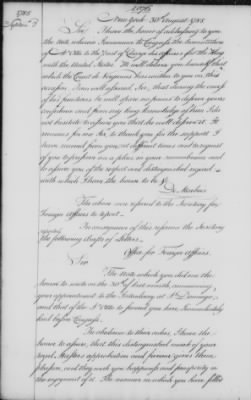 1785
September 3
New York 30th August 1785.
Sir, I have the honor of addressing to you
the note wherein I announce to Congress the nomination
of M. Otto to the Post of Chargé des affaires of the King
with the United States. He will deliver you himself that
which the Count de Vergennes has written to you on this
occasion. I am well assured, Sir, that during the course
of his functions, he will spare no pains to deserve your
confidence, and from my long knowledge of him I do
not hesitate to assure you that he will deserve it. It
remains for me Sir, to thank you for the support I
have received from you at different times and to request
of you to preserve me a place in your remembrance and
to assure you of the respect and distinguished regard
with which I have the honor to be &c.
De Marbois
The above was referred to the Secretary for
Foreign Affairs to report.
In consequence of this reference the Secretary
reported
the following Drafts of Letters.
Office for Foreign Affairs.
Sir
The Note which you did me the
honor to write on the 30th of last month, announcing
your appointment to the Intendancy at St. Domingo,
and that of Mr. Otto to succeed you here, I immediately
laid before Congress.
In obedience to their orders, I have the
honor to assure, that this distinguished mark of your
royal Master's approbation and favour gives them
pleasure, and they wish you happiness and prosperity in
the enjoyment of it. The manner in which you have filled